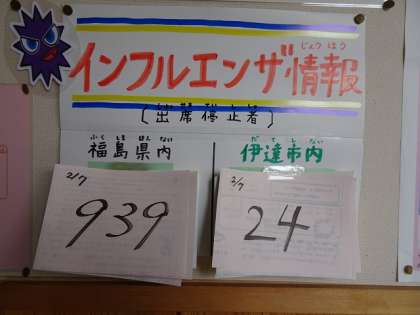 じょうほう
インフルエンザ情報
(出席停止者)
ふくしまけんない
福島県内
だてしない
伊達市内
2/7
939
2/7
24